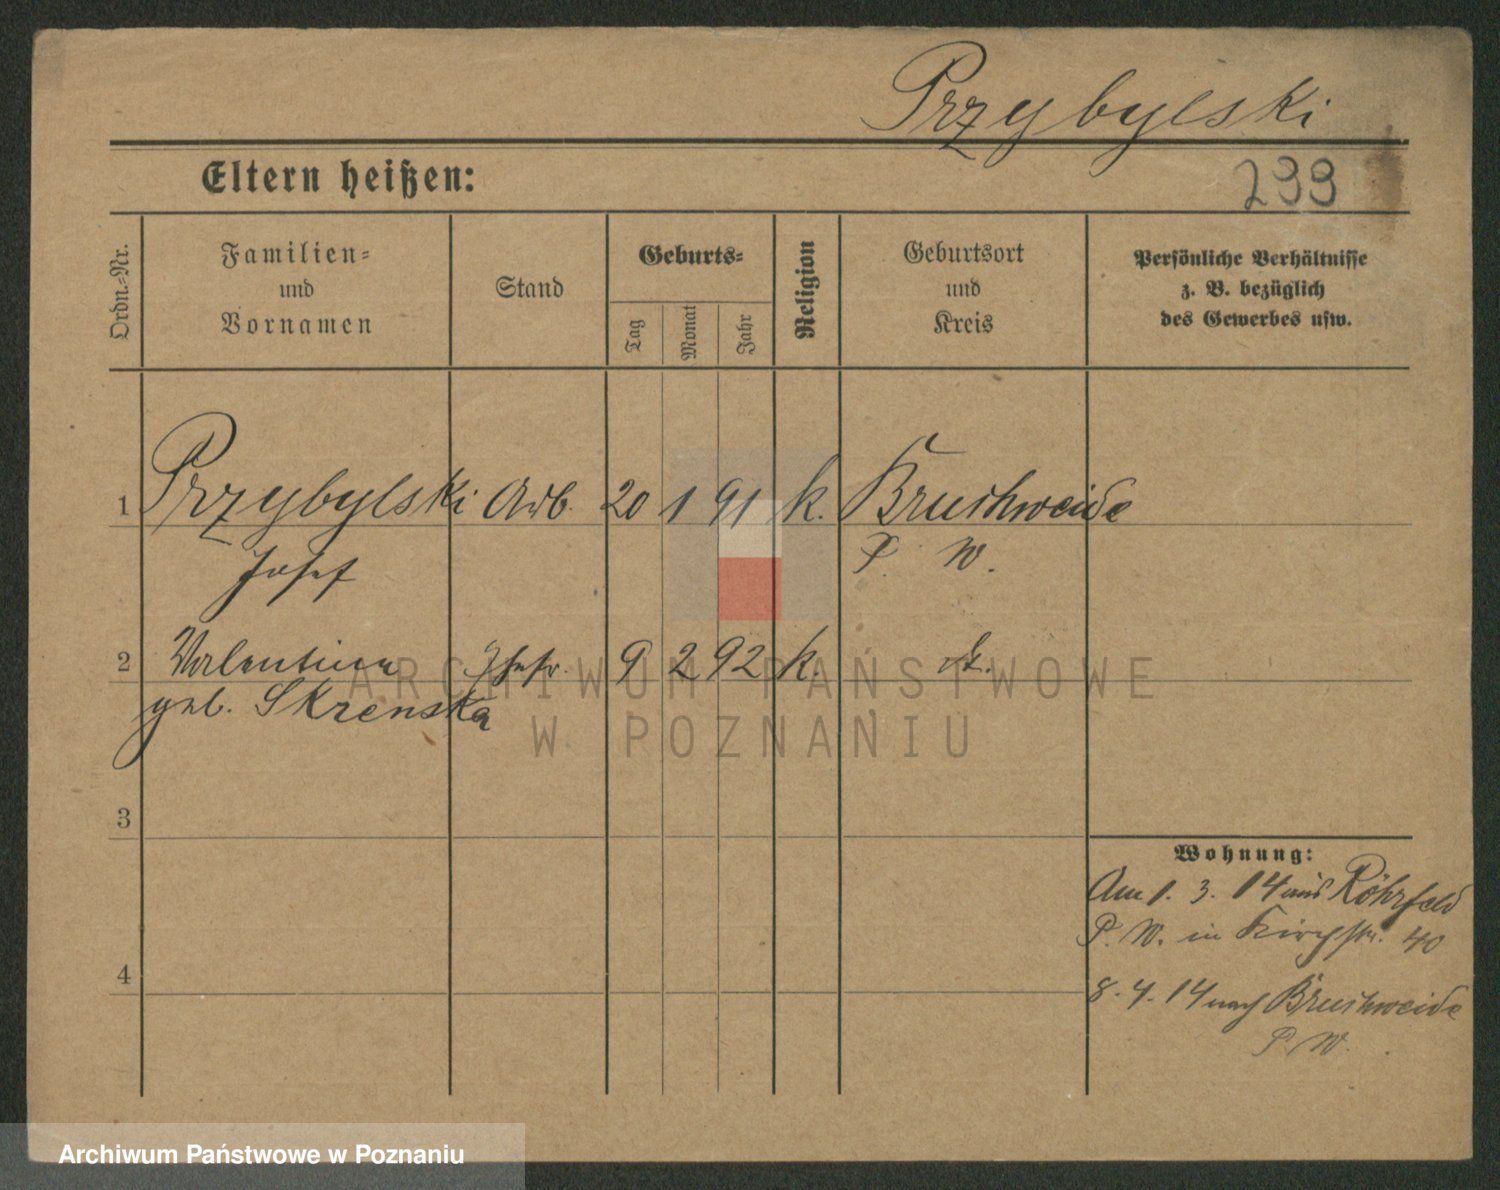 Przybylski
Eltern heißen:
299
Ordn.-Nr.
Familien-
und
Vornamen
Stand
Geburts-
Tag
Monat
Jahr
Religion
Geburtsort
und
Kreis
Persönliche Verhältnisse
z. B. bezüglich
des Gewerbes usw.
1 Przybylski Arb. 20 1 91 k. Bruchweide
Josef P. W.
2 Valentina 9 2 92 k.
geb. Skrenska
ARCHIWUM PAŃSTWOWE
W POZNANIU
3
Wohnung:
Am 1. 3. 14 aus Röhrfeld
P. W. in Kirchstr. 40
4
8. 4. 14 nach Bruchweide
P. W.
Archiwum Państwowe w Poznaniu